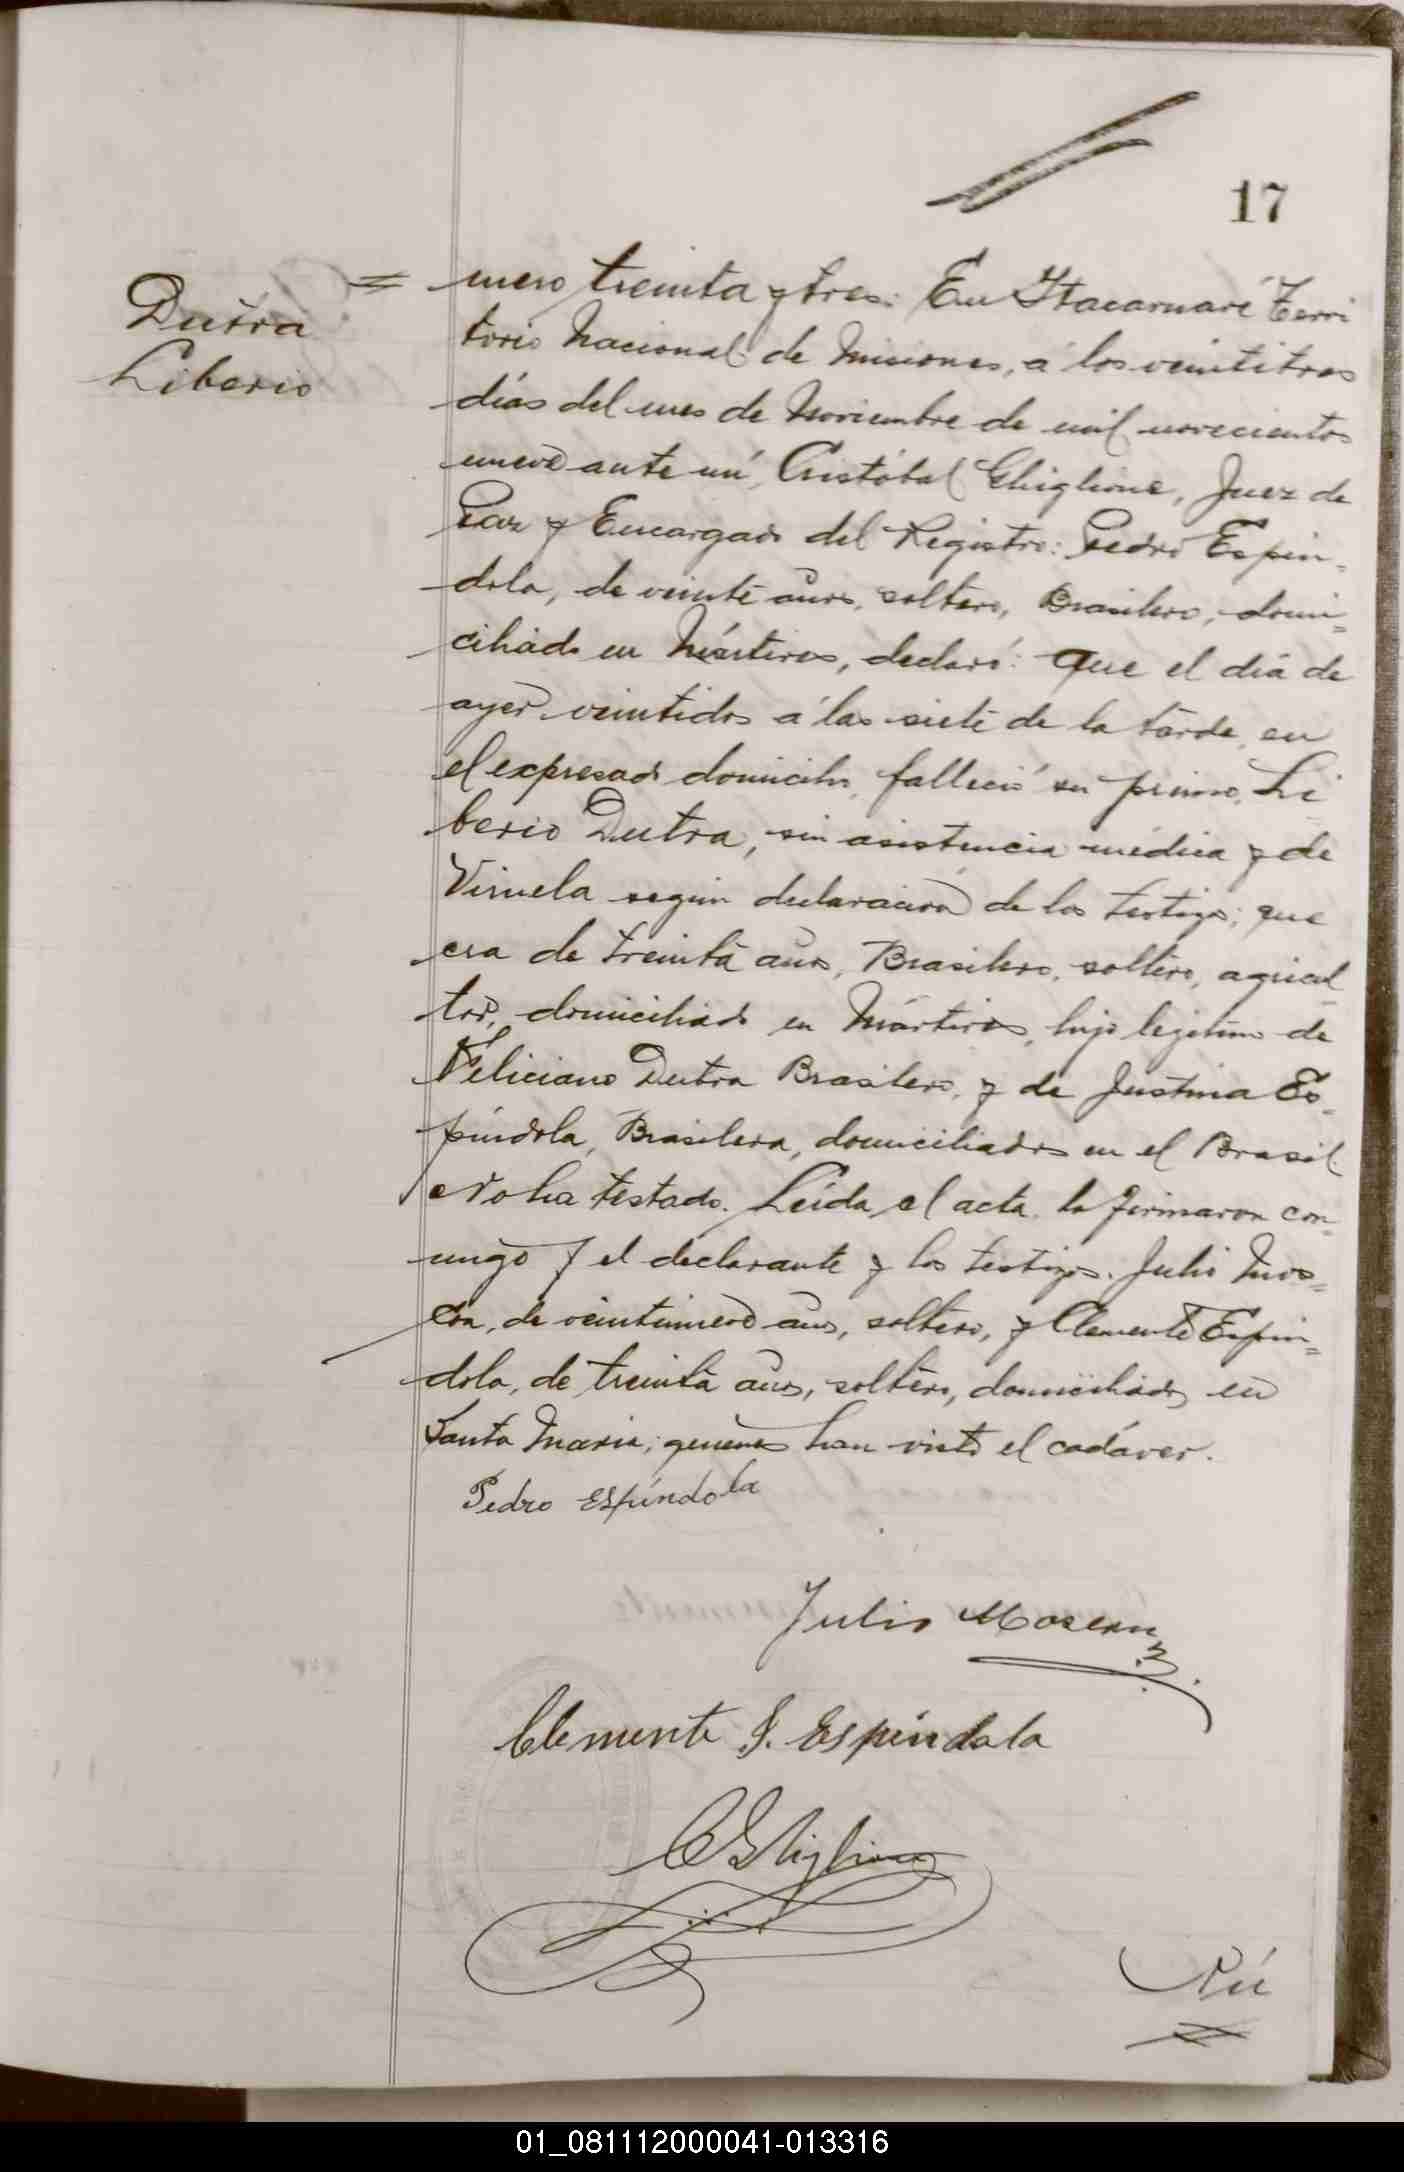 17
Dutra
Liberio
= mero treinta y tres: En Itacaruaré Terri
torio Nacional de Misiones, á los veintitres
días del mes de Noviembre de mil novecientos
nueve ante mí, Cristóbal Ghiglione, Juez de
Paz y Encargado del Registro: Pedro Espín-
dola, de veinte años, soltero, Brasilero, domi=
ciliado en Mártires, declaró: Que el día de
ayer veintidos á las siete de la tarde, en
el expresado domicilio, falleció su primo, Li
berio Dutra, sin asistencia médica y de
Viruela según declaración de los testigos; que
era de treinta años, Brasilero, soltero, agricul-
tor, domiciliado en Mártires, hijo legítimo de
Feliciano Dutra Brasilero, y de Justina Es-
píndola, Brasilera, domiciliados en el Brasil
No ha testado. Leída el acta, la firmaron con-
migo y el declarante y los testigos. Julio Mos=
, de veintinueve años, soltero, y Clemente Espín=
dola, de treinta años, soltero, domiciliados en
Santa María; quienes han visto el cadáver.
Pedro Espíndola
Julio
Clemente J. Espíndola
C Ghiglione
Nú
=
01_081112000041-013316